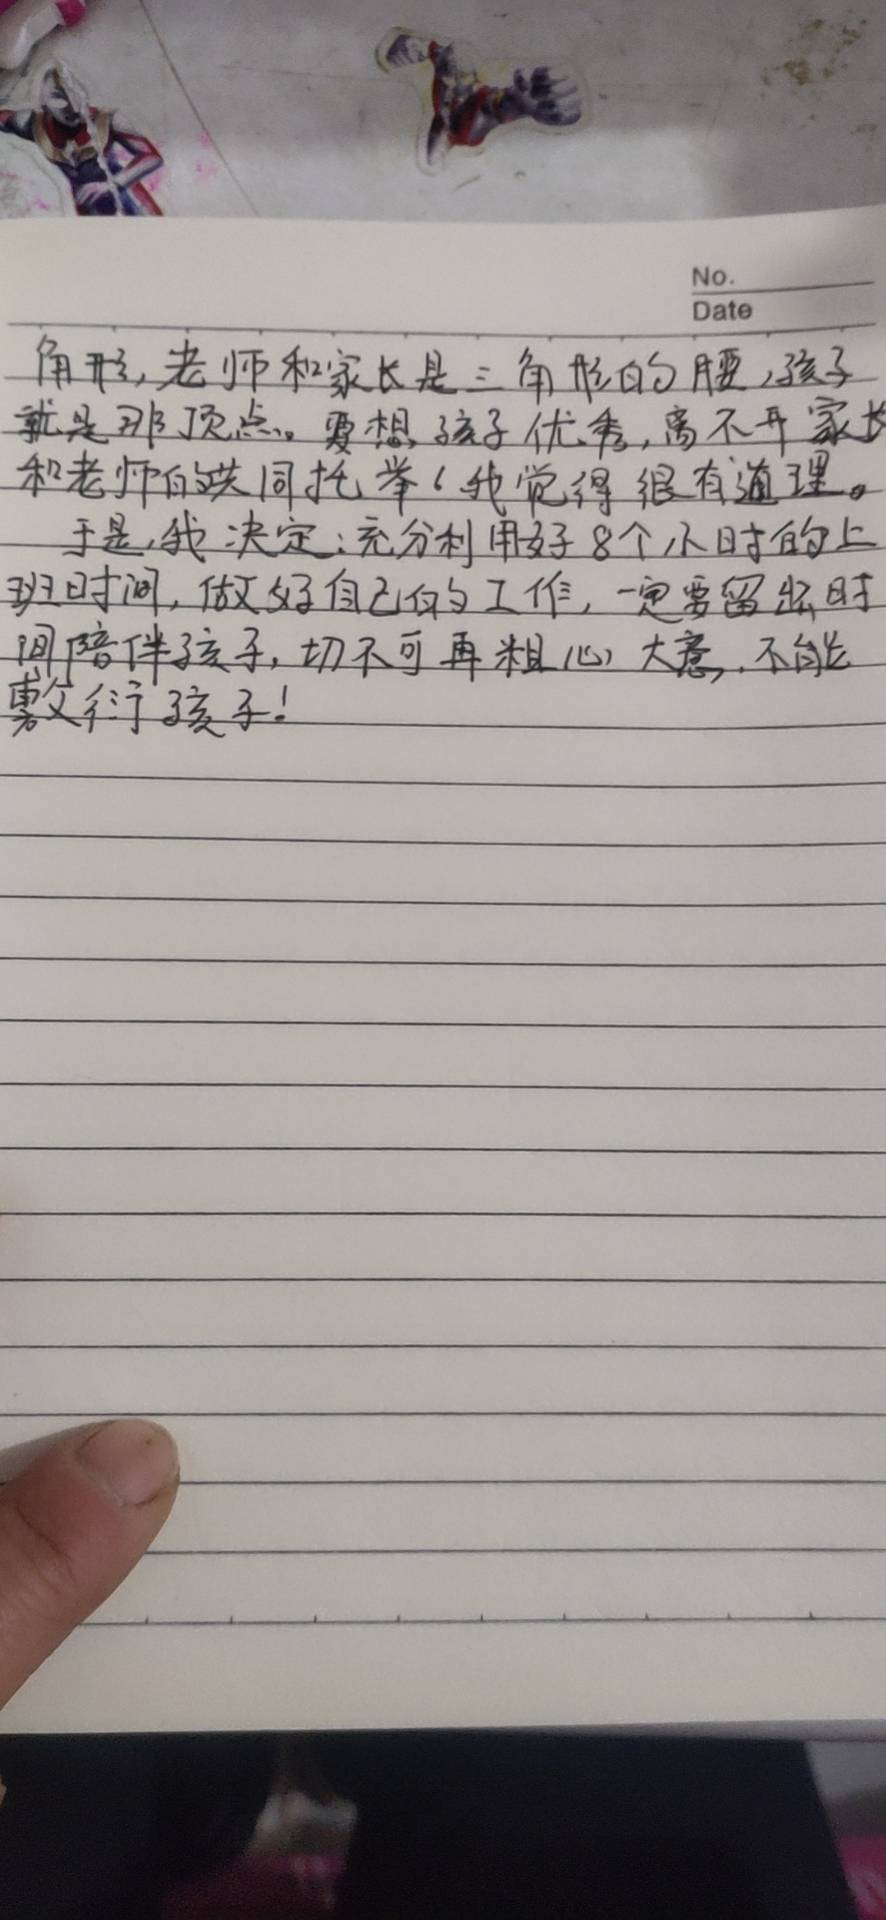 No.
Date
角形,老师和家长是三角形的腰,孩子
就是那顶点。要想孩子优秀,离不开家长
和老师的共同托举,我觉得很有道理。
于是,我决定:充分利用好8个小时的上
班时间,做好自己的工作,一定要留出时
间陪伴孩子,切不可再粗心大意,不能
敷衍孩子!